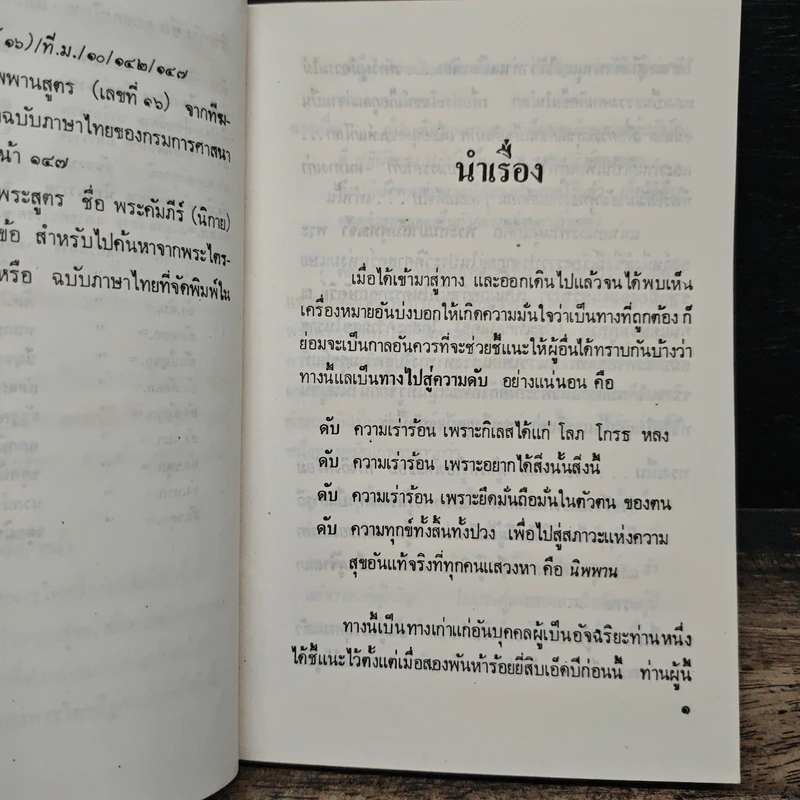 ๑๖)/ที.ม./๑๐/๑๔๒/๑๔๗
พพานสูตร (เลขที่ ๑๖) จากทีฆ-
ฉบับภาษาไทยของกรมการศาสนา
หน้า ๑๔๗
พระสูตร ชื่อ พระคัมภีร์ (นิกาย)
ข้อ สำหรับไปค้นหาจากพระไตร-
หรือ ฉบับภาษาไทยที่จัดพิมพ์ใน
นำเรื่อง
เมื่อได้เข้ามาสู่ทาง และออกเดินไปแล้วจนได้พบเห็น
เครื่องหมายอันบ่งบอกให้เกิดความมั่นใจว่าเป็นทางที่ถูกต้อง ก็
ย่อมจะเป็นกาลอันควรที่จะช่วยชี้แนะให้ผู้อื่นได้ทราบกันบ้างว่า
ทางนี้แลเป็นทางไปสู่ความดับ อย่างแน่นอน คือ
ดับ ความเร่าร้อน เพราะกิเลสได้แก่ โลภ โกรธ หลง
ดับ ความเร่าร้อน เพราะอยากได้สิ่งนั้นสิ่งนี้
ดับ ความเร่าร้อน เพราะยึดมั่นถือมั่นในตัวตน ของตน
ดับ ความทุกข์ทั้งสิ้นทั้งปวง เพื่อไปสู่สภาวะแห่งความ
สุขอันแท้จริงที่ทุกคนแสวงหา คือ นิพพาน
ทางนี้เป็นทางเก่าแก่อันบุคคลผู้เป็นอัจฉริยะท่านหนึ่ง
ได้ชี้แนะไว้ตั้งแต่เมื่อสองพันห้าร้อยยี่สิบเอ็ดปีก่อนนี้ ท่านผู้นี้
๑